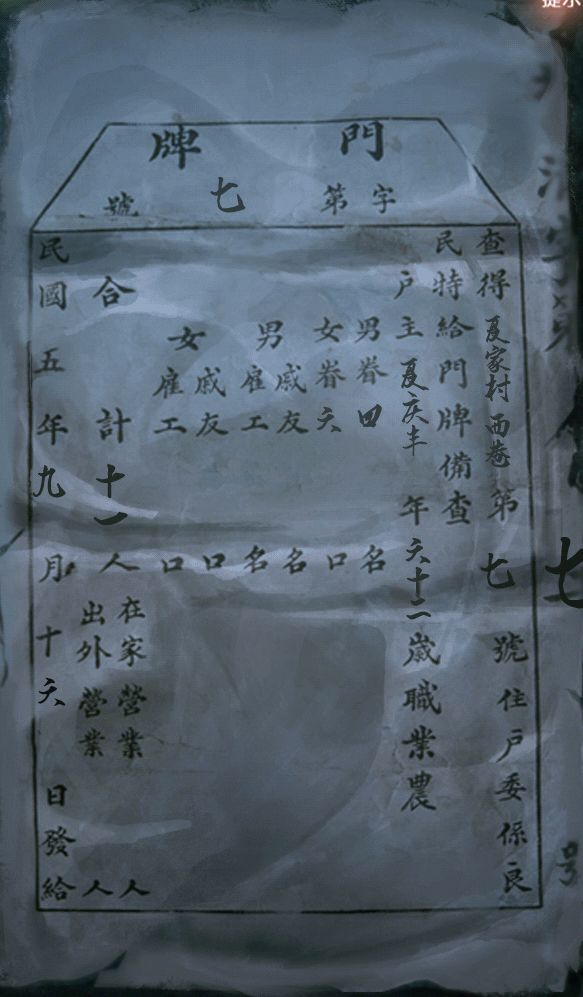 提示
門牌
字第七號
查得夏家村西巷第七號住戶委係良
民特給門牌備查
戶主夏庆丰年六十二歲職業農
男眷四名
女眷六口
男戚友名
男雇工名
女戚友口
女雇工口
合計十一人
在家營業人
出外營業人
民國五年九月十六日發給
七
号